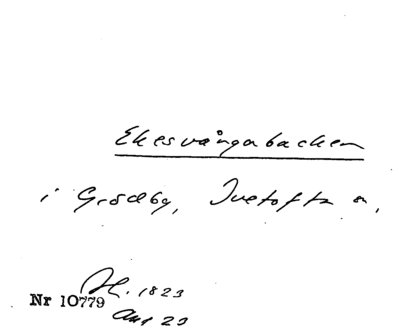 Ekesvångabacken
i Grödby, Ivetofta s,
Nr 10779
Sk. 1823
Aug 29